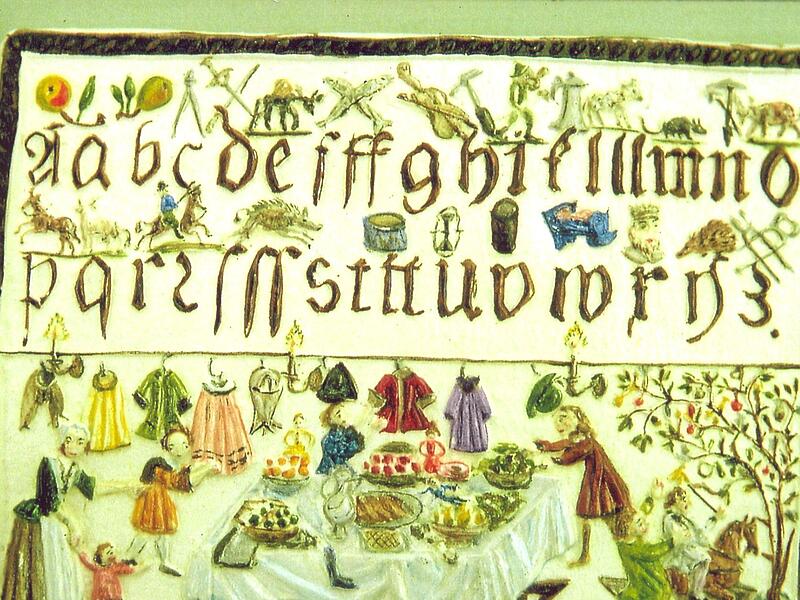 A a b c d e ſ f ff g h i k l ll m n o
p q r ꝛ s ſ ſſ s t tt u v w x y z.